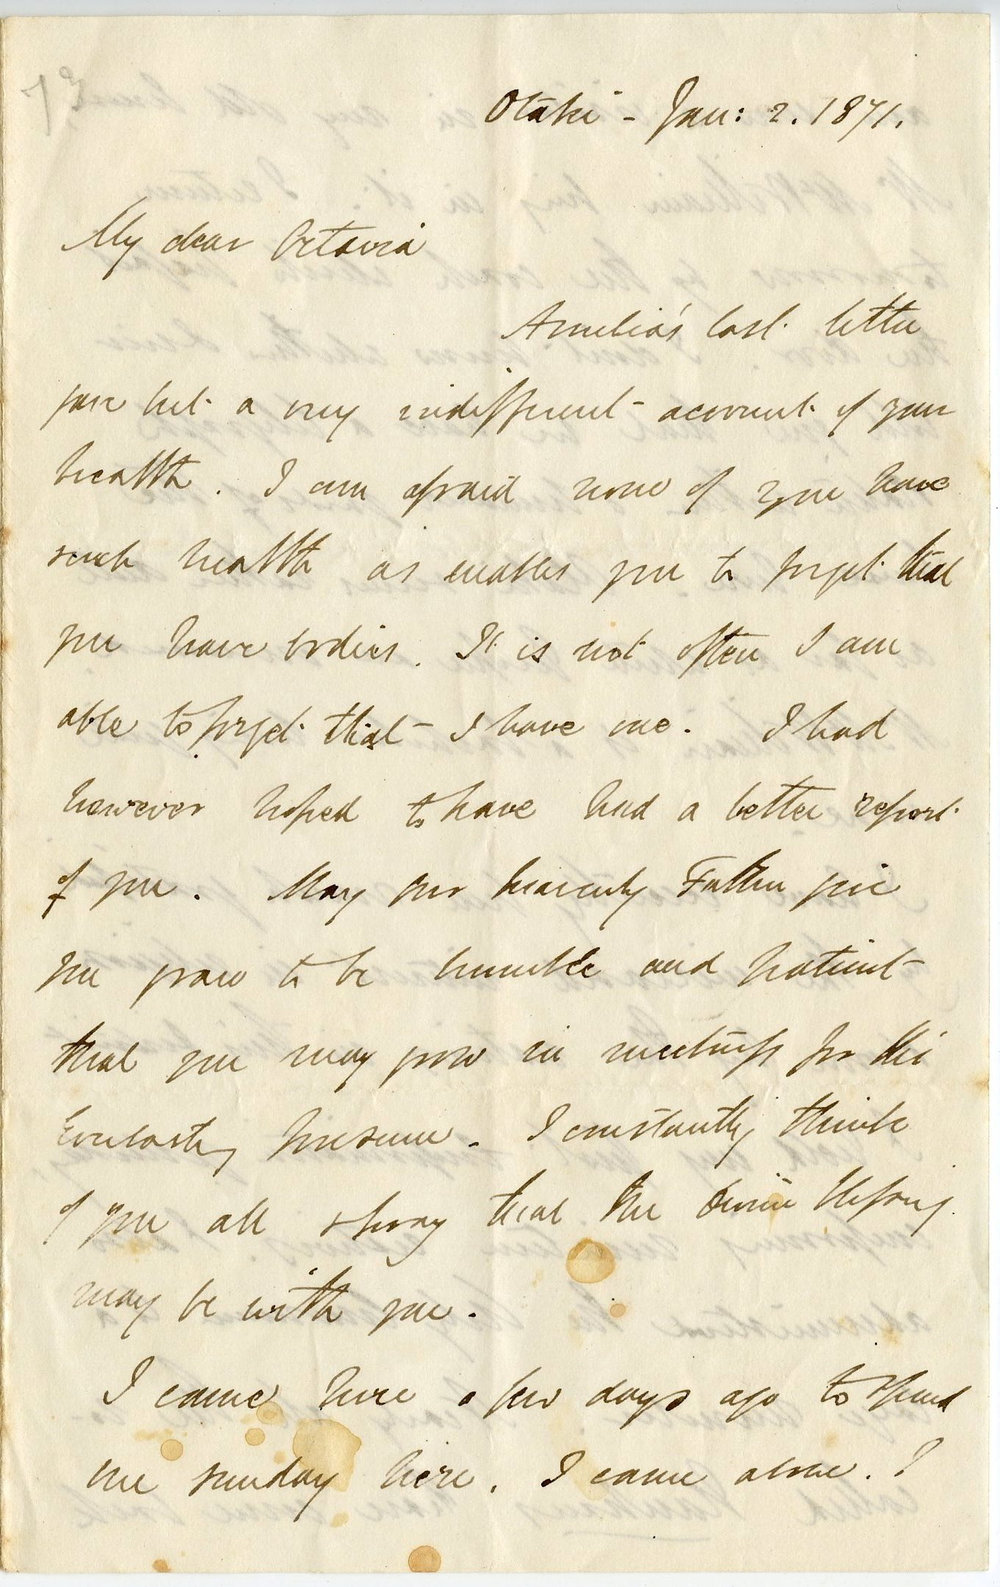 Otaki - Jan: 2. 1871.
My dear Octavia
Amelia's last letter
gave but a very indifferent account of your
health. I am afraid none of you have
such health as enables you to forget that
you have bodies. It is not often I am
able to forget that I have one. I had
however hoped to have had a better report
of you. May our heavenly Father give
you grace to be humble and patient
that you may grow in meetness for His
Everlasting presence. I constantly think
of you all & pray that the Divine blessing
may be with you.
I came here a few days ago to spend
one sunday here. I came alone. I